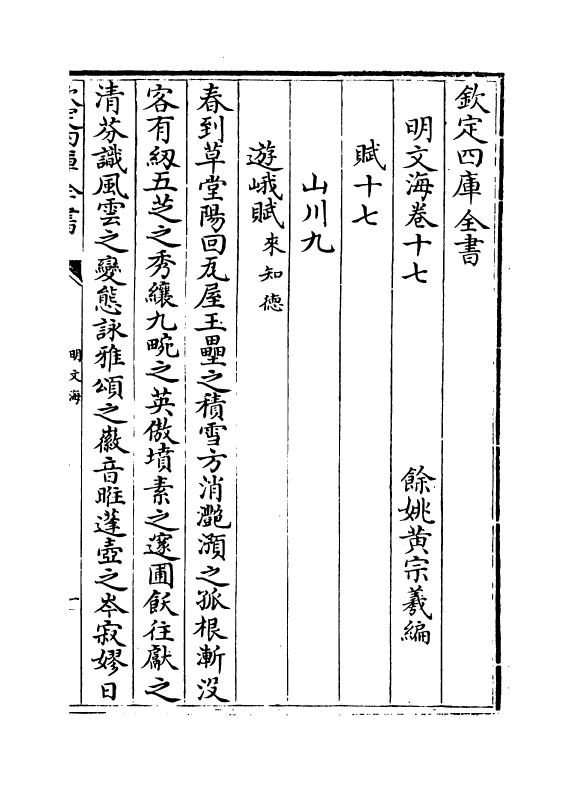 欽定四庫全書
明文海卷十七
餘姚黃宗羲編
賦十七
山川九
遊峨賦來知德
春到草堂陽回瓦屋王壘之積雪方消灧澦之孤根漸沒
客有紉五芝之秀纕九畹之英傲墳素之邃圃飫往獻之
清芬識風雲之變態詠雅頌之徽音睢蓬壺之岑寂嫪日
明文海
一